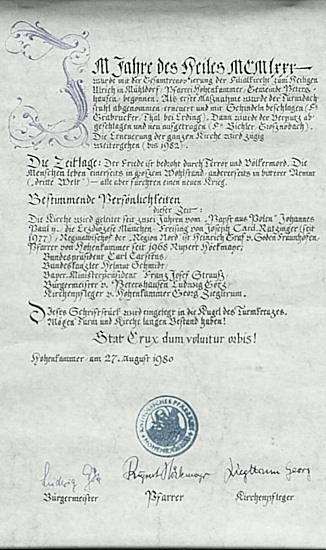 Im Jahre des Heiles MCMLXXX
wurde mit der Gesamtrenovierung der Filialkirche zum Heiligen
Ulrich in Mühldorf, Pfarrei Hohenkammer, Gemeinde Peters-
hausen, begonnen. Als erste Maßnahme wurde der Turmdach-
stuhl abgenommen, erneuert und mit Schindeln beschlagen (Fa
Thal bei Erding). Dann wurde der Verputz ab-
geschlagen und neu aufgetragen (Fa Bichler,
Die Erneuerung der ganzen Kirche wird zügig
weitergehen (bis 1982).
Die Zeitlage: Der Friede ist bedroht durch Terror und Völkermord. Die
Menschen leben einerseits in großem Wohlstand, andererseits in bitterer Armut
("dritte Welt") – alle aber fürchten einen neuen Krieg.
Bestimmende Persönlichkeiten
dieser Zeit:
Die Kirche wird geleitet seit zwei Jahren vom "Papst aus Polen" Johannes
Paul II., die Erzdiözese München-Freising von Joseph Card. Ratzinger (seit
1977), Regionalbischof der "Region Nord" ist Heinrich Graf v. Soden-Fraunhofen,
Pfarrer von Hohenkammer seit 1968 Rupert Hörkmayr.
Bundespräsident Carl Carstens,
Bundeskanzler Helmut Schmidt,
Bayer. Ministerpräsident Franz Josef Strauß,
Bürgermeister v. Petershausen Ludwig Götz
Kirchenpfleger v. Hohenkammer Georg Zieglt
Dieses Schriftstück wird eingelegt in die Kugel des Turmkreuzes.
Mögen Turm und Kirche langen Bestand haben!
Stat Crux dum volvitur orbis!
Hohenkammer, am 27. August 1980
Ludwig Götz
Bürgermeister Pfarrer Kirchenpfleger